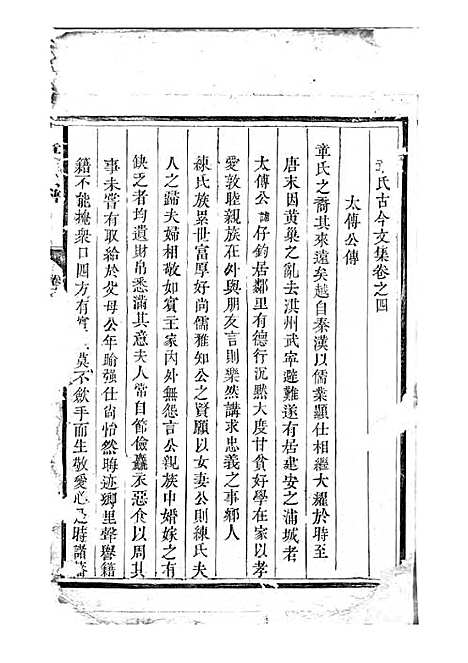 氏古今文集卷之四
太傅公傳
章氏之裔其來遠矣越自秦漢以儒業顯仕相繼大耀於時至
唐末因黃巢之亂去淇州武寧避難遂有居建安之浦城者
太傅公諱仔鈞居鄉里有德行沉黙大度甘貧好學在家以孝
愛敦睦親族在外與朋友言則樂然講求忠義之事鄉人
練氏族累世富厚好尚儒雅知公之賢願以女妻公則練氏夫
人之歸夫婦相敬如賓主家丙外無怨言公親族中婚嫁之有
缺乏者均遺財帛悉滿其意夫人常自節儉麤衣惡食以周其
事未嘗有取給於父母公年踰强仕尚怡然晦迹鄉里聲譽籍
籍不能掩衆口四方有莫不歛手而生敬愛心是時諸藩